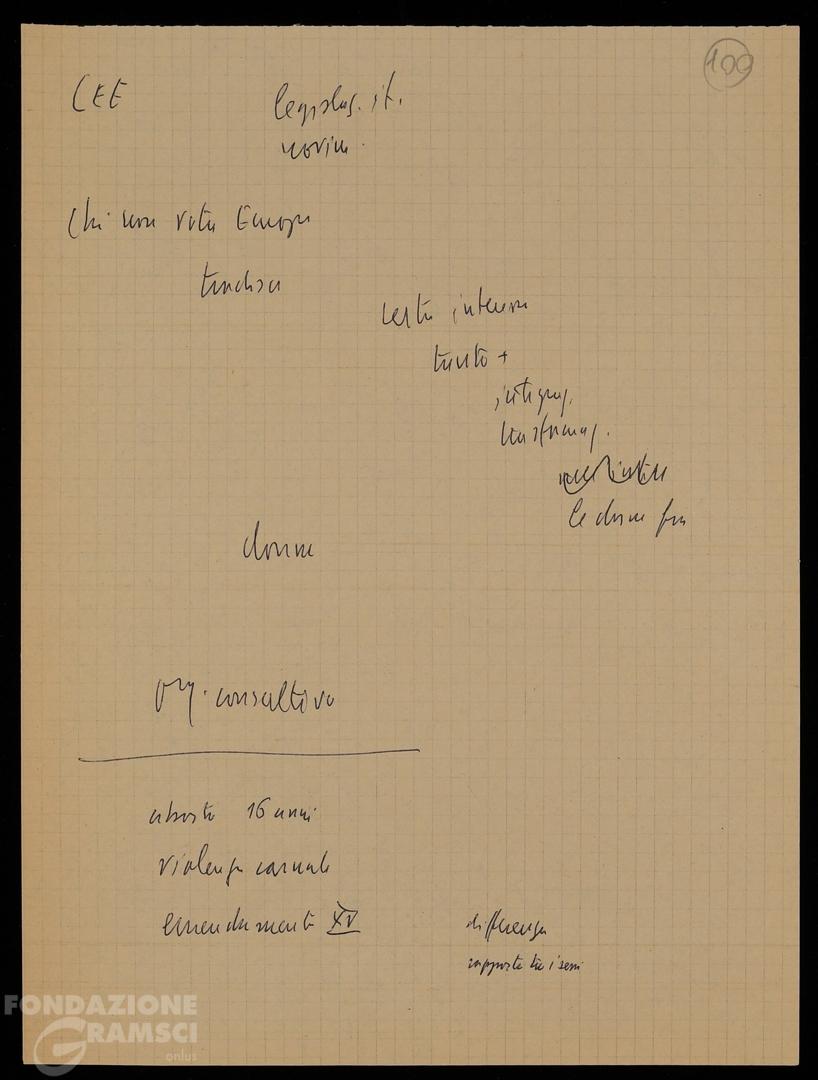 109
CEE
legislaz. it.
Chi non vota Europa
resta interna
tanto +
integraz.
trasformaz.
le donne
donne
org. consultivo
aborto 16 anni
violenza carnale
emendamento XV
differenza
rapporto tra i sessi
FONDAZIONE
GRAMSCI
onlus